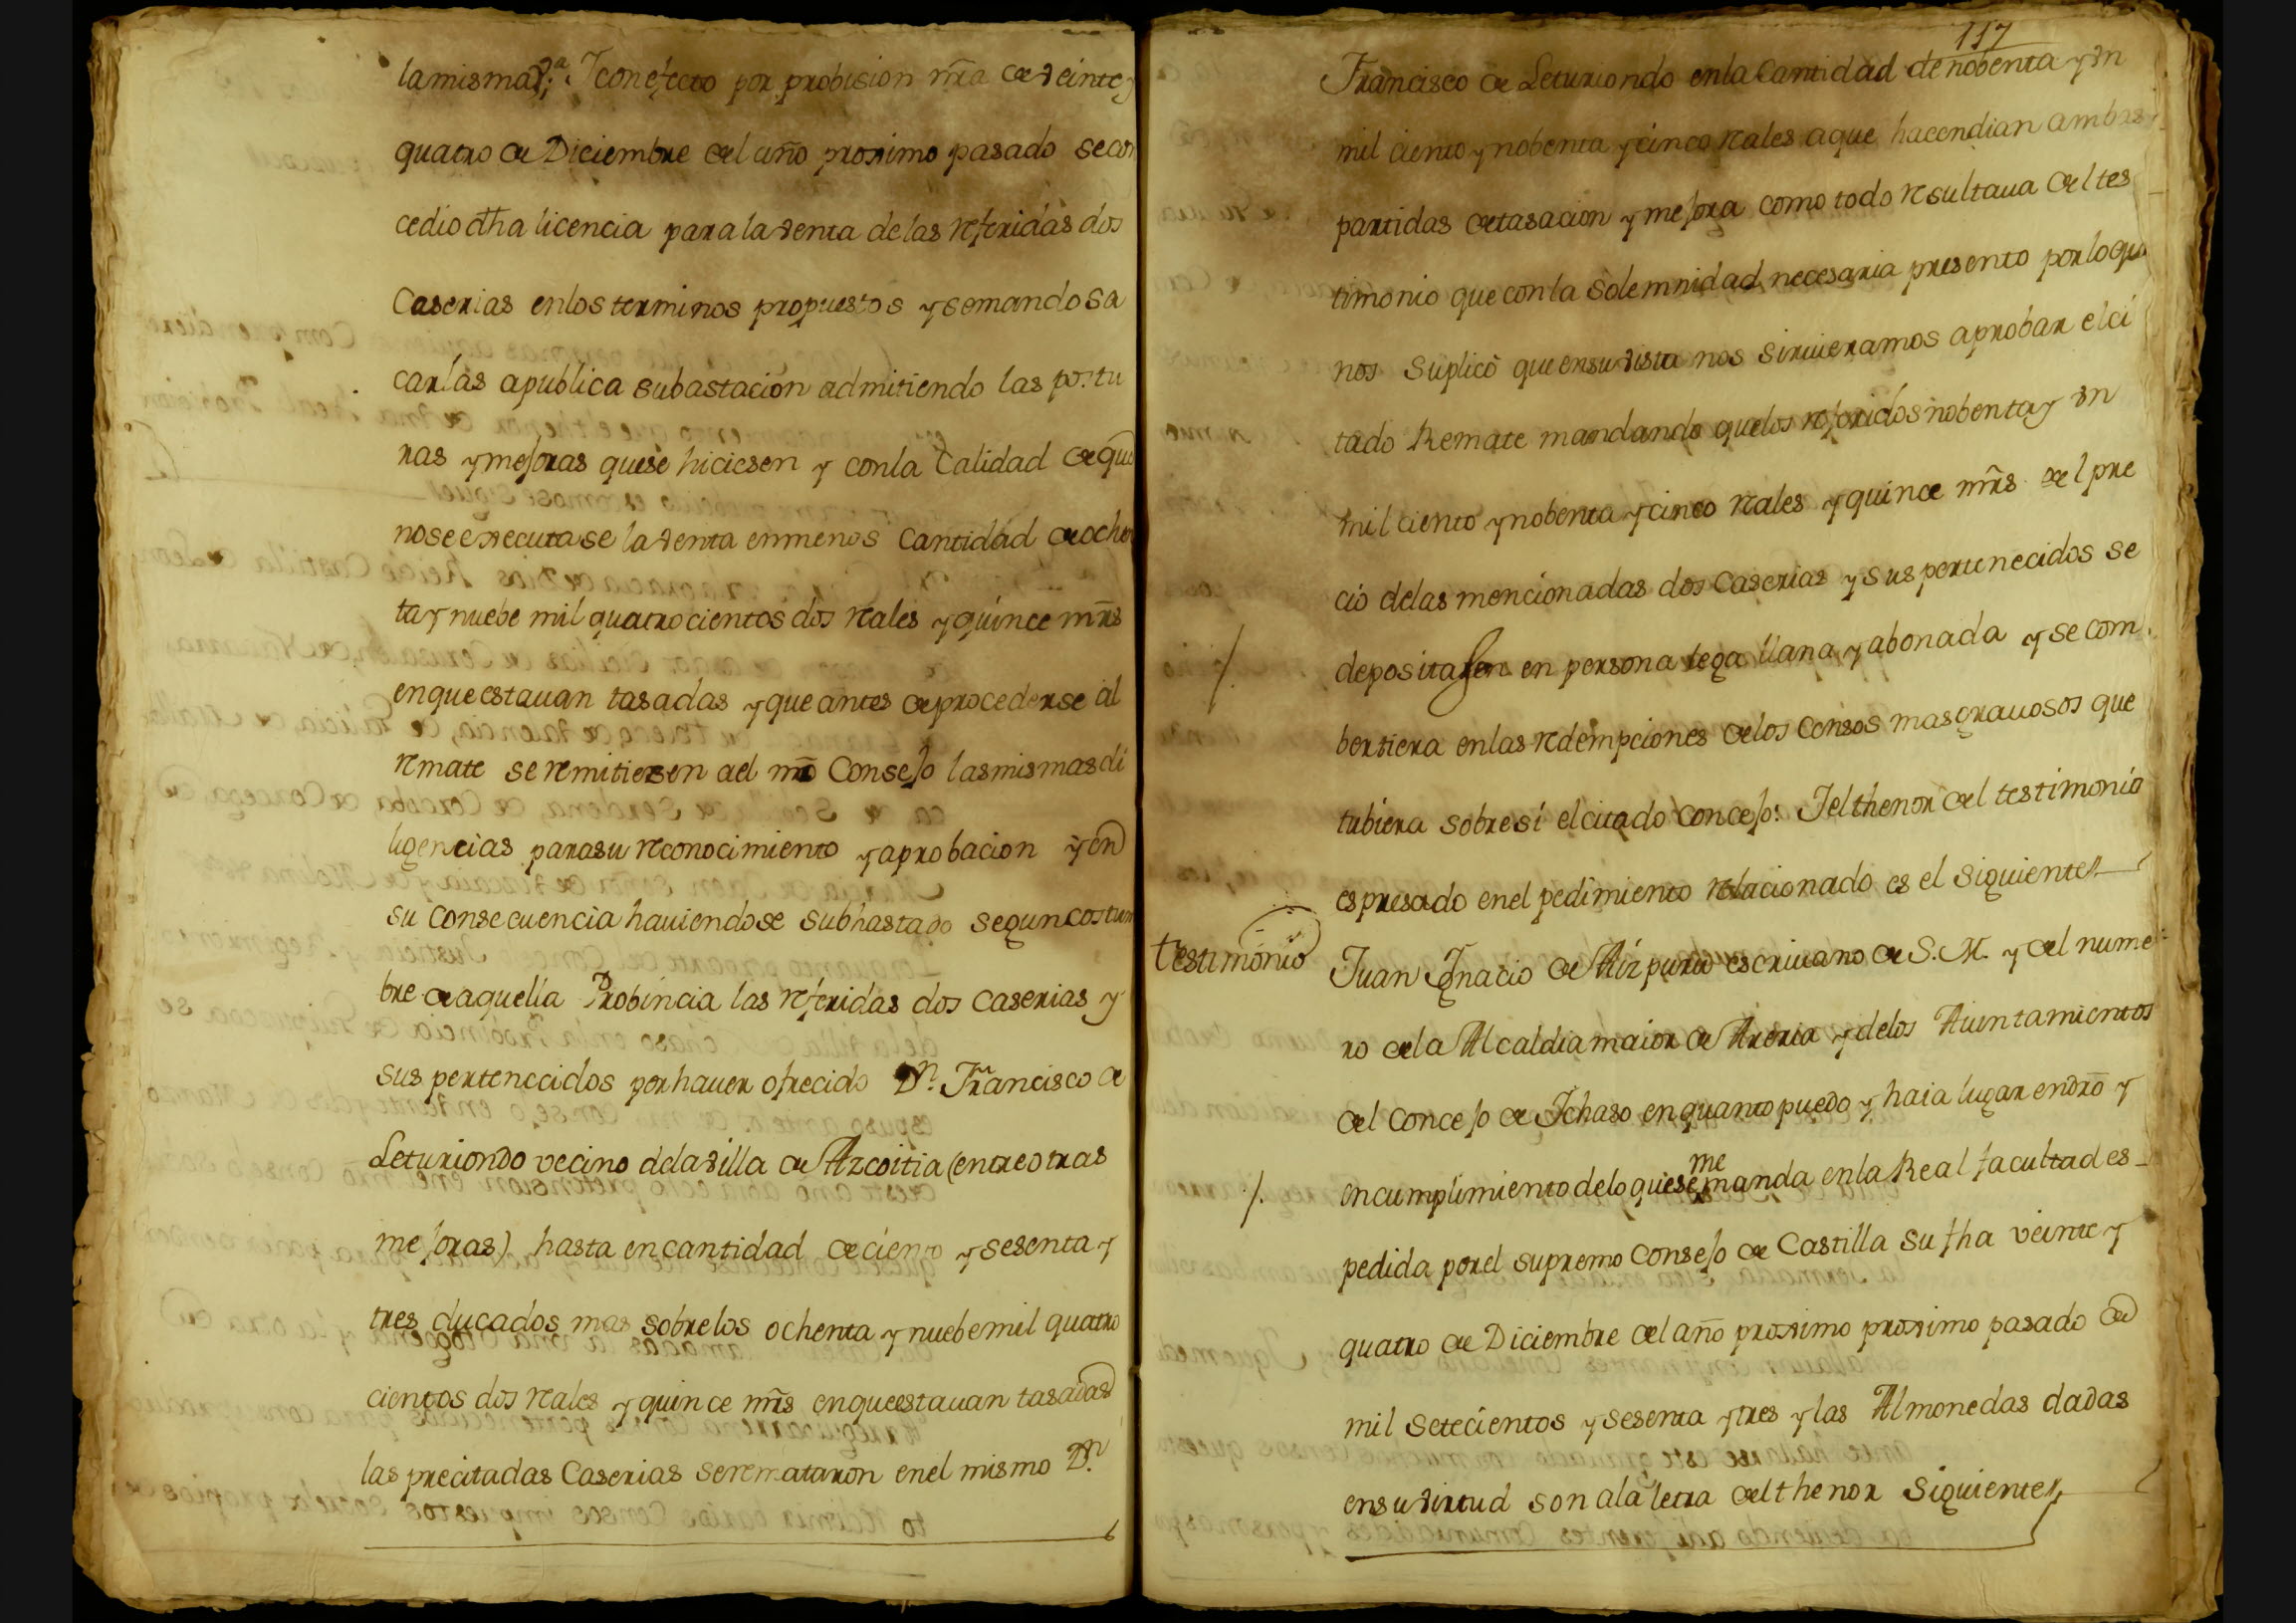 la misma V.ª Y con efecto por probision nr̃a de veinte y
quatro de Diciembre del año proximo pasado se con
cedio dha licencia para la venta de las referidas dos
Caserias en los terminos propuestos y se mando sa
carlas a publica subastacion admitiendo las postu
ras y mejoras que se hiciesen y con la Calidad de que
no se executase la venta en menos Cantidad de ochen
ta y nuebe mil quatrocientos dos reales y quince mr̃s
en que estauan tasadas y que antes de procederse al
remate se remitiesen ael nr̃o Consejo las mismas di
ligencias para su reconocimiento y aprobacion y en
su consecuencia hauiendose subhastado segun costum
bre de aquella Probincia las referidas dos caserias y
sus pertenecidos por hauer ofrecido Dn. Francisco de
Leturiondo vecino de la villa de Azcoitia (entre otras
mejoras) hasta en cantidad de ciento y sesenta y
tres ducados mas sobre los ochenta y nuebe mil quatro
cientos dos reales y quince mr̃s en que estauan tasadas
las precitadas Caserias se remataron en el mismo Dn.
117
Francisco de Leturiondo en la Cantidad de nobenta y vn
mil ciento y nobenta y cinco reales a que hacendian ambas
partidas de tasacion y mejora como todo resultaua del tes
timonio que con la solemnidad necesaria presento por lo que
nos suplicò que en su vista nos siruieramos aprobar el ci
tado Remate mandando que los referidos nobenta y vn
mil ciento y nobenta y cinco reales y quince mr̃s del pre
cio de las mencionadas dos Caserias y sus pertenecidos se
depositasen en persona lega llana y abonada y se com
bertiera en las redempciones de los Censos mas grauosos que
tubiera sobre sì el citado Concejo: Y el thenor del testimonio
espresado en el pedimiento relacionado es el siguiente
testimonio
Juan Ygnacio de Aizpuru escriuano de S. M. y del nume
ro de la Alcaldia maior de Areria y de los Aiuntamientos
del Concejo de Ychaso en quanto puedo y haia lugar en dr̃o y
en cumplimiento de lo que se me manda en la Real facultad es
pedida por el supremo Consejo de Castilla su fha veinte y
quatro de Diciembre del año proximo proximo pasado de
mil setecientos y sesenta y tres y las Almonedas dadas
en su virtud son a la letra del thenor siguiente